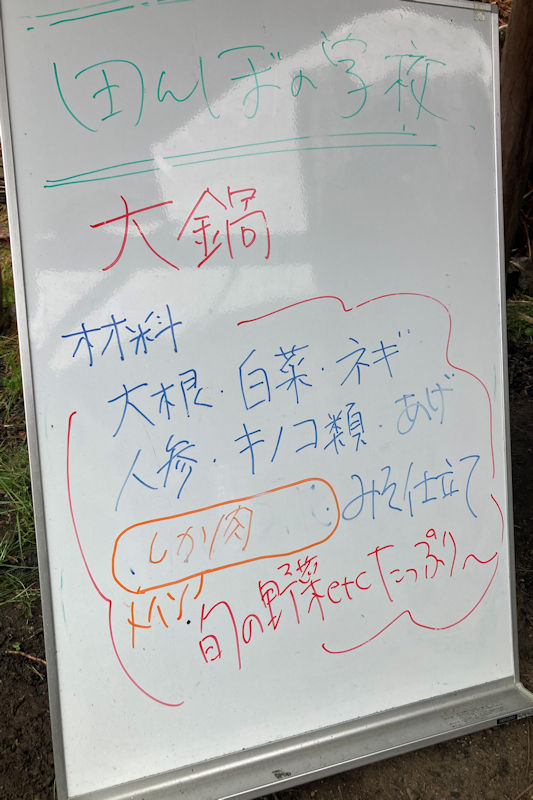 田んぼの学校
大鍋
材料
大根・白菜・ネギ
人参・キノコ類・あげ
・しか肉 ・みそ仕立て
メイン
・旬の野菜etcたっぷり〜